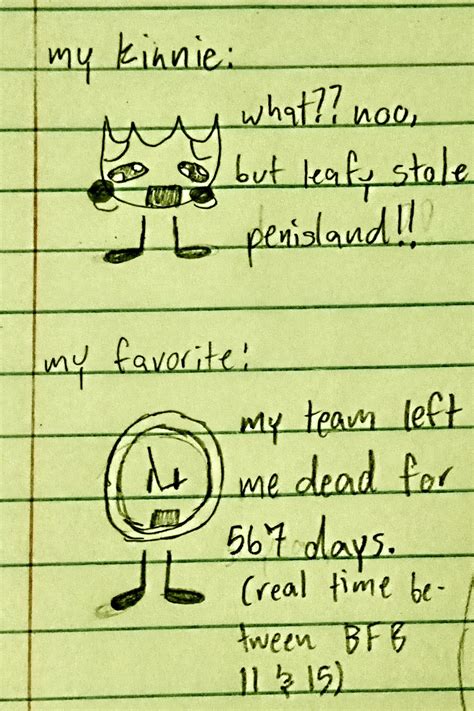 my kinnie:
what?? noo,
but leafy stole
penisland!!
my favorite:
my team left
me dead for
567 days.
(real time be-
tween BFB
11 & 15)